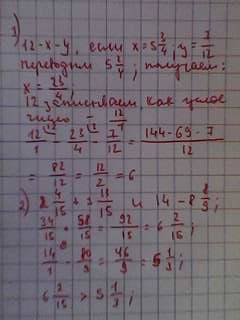 1)
12-x-y, если x=5 3/4, y=7/12
переводим 5 3/4; получаем:
x=23/4;
12 записываем, как целое
число - 12/1
12/1 - 23/4 - 7/12 = (144-69-7)/12
= 82/12 = 12/2 = 6
2) 2 4/15 + 3 13/15 и 14-8 8/9;
34/15 + 58/15 = 92/15 = 6 2/15;
14/1 - 80/9 = 46/9 = 5 1/9;
6 2/15 > 5 1/9;